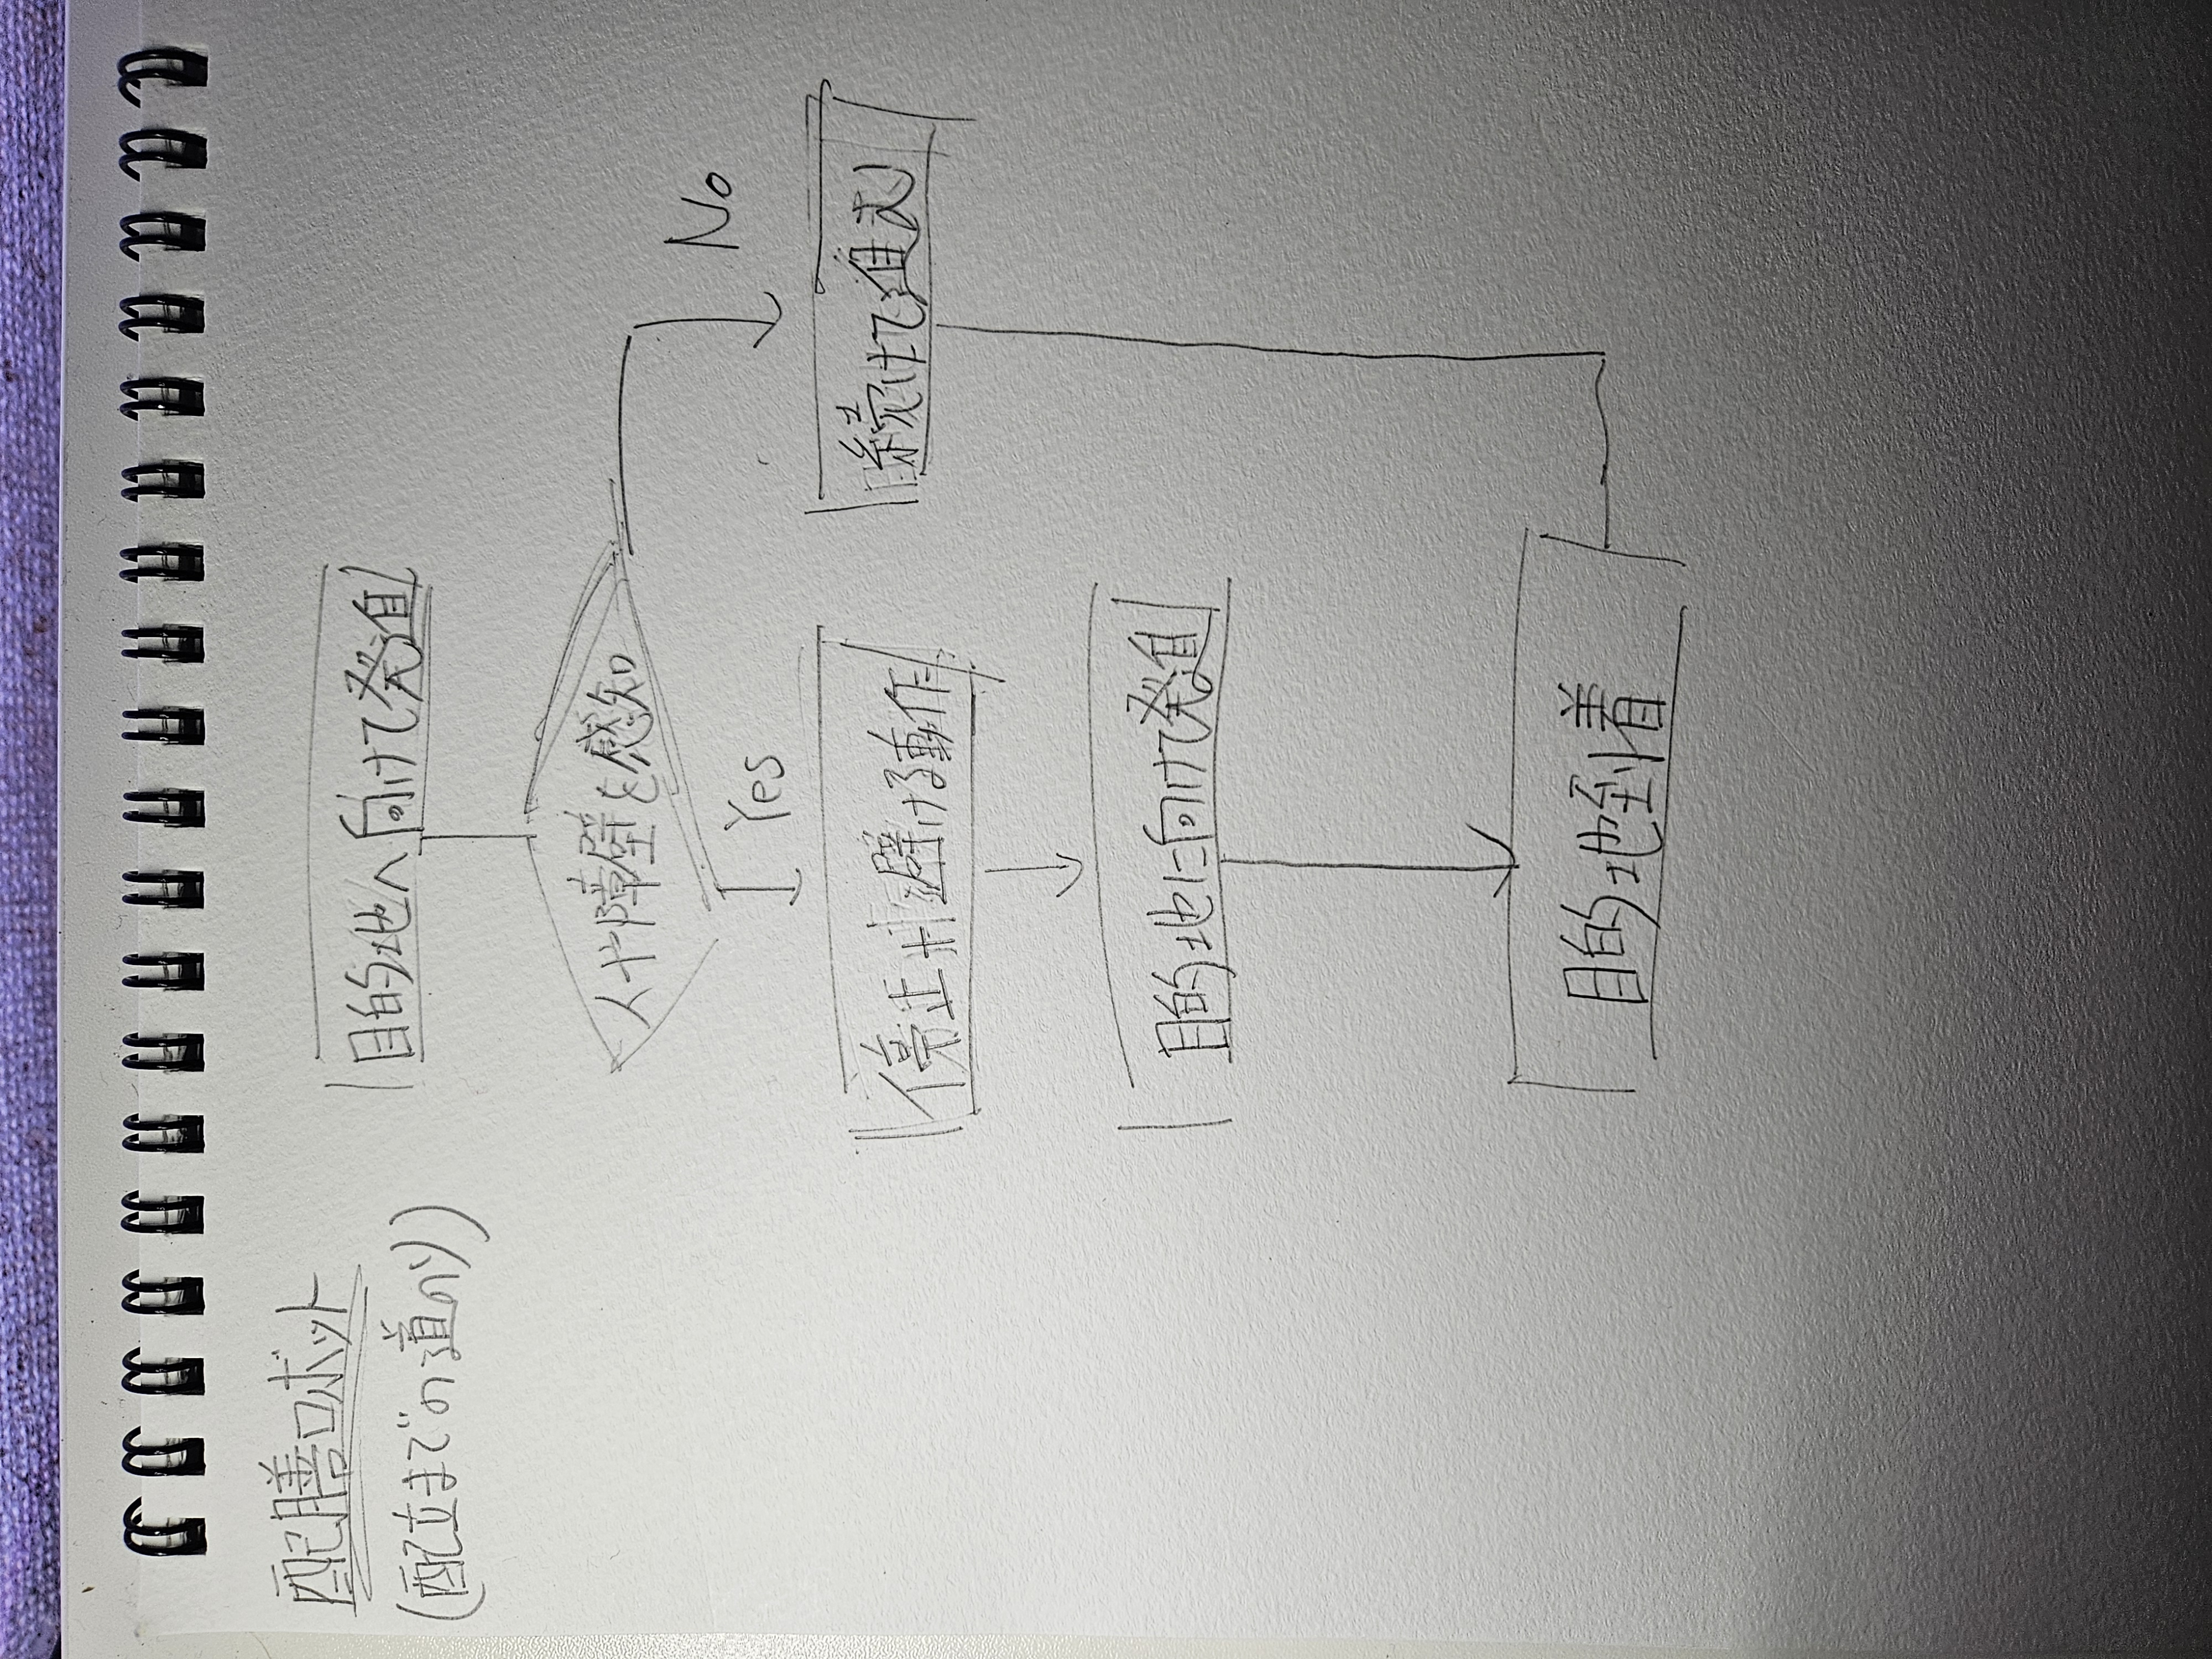 配膳ロボット
(配立までの道のり)
目的地へ向けて発進
人や障壁を感知
Yes
No
停止や避ける動作
続けて進む
目的地に向けて発進
目的地到着